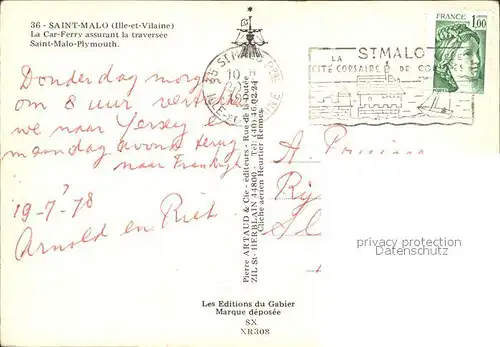 36 - SAINT-MALO (Ille-et-Vilaine)
La Car-Ferry assurant la traversée
Saint-Malo-Plymouth.
Donderdag morgen
om 8 uur
we naar Jersey
maandag avond terug
naar Frankrijk
19-7-78
Arnold en Riet
Pierre ARTAUD & Cie - éditeurs - Rue de la Dutée
ZIL St-HERBLAIN 44800 - Tél. (40) 46.02.24
Cliché aérien Heurtier Rennes
Les Editions du Gabier
Marque déposée
SX
XR308
35 ST MALO
10 H
ILLE-ET-VILAINE
LA
ST MALO
CITÉ CORSAIRE DE
FRANCE
1,00
POSTES
A.
privacy protection
Datenschutz